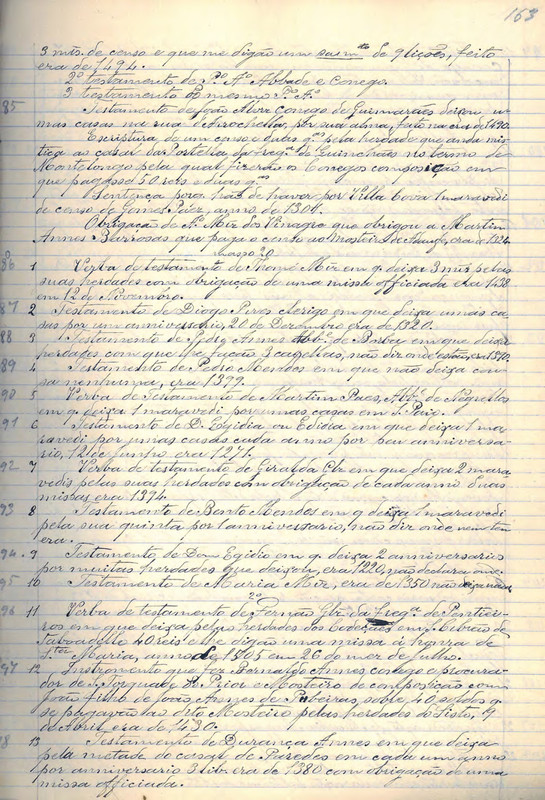 163
3 mis. de censo e que me digão um de 9 lições, feito
era de 1494.
2º testamento de Pº Aº Abbade e conego.
3 testamento do mesmo Pº Aº
85 Testamento de João Alvz conego de Guimarães deixou u-
mas casas na rua d'Arrochella, por sua alma, feito na era de 1470.
Escritura de um censo de duas gas pela herdade que anda mis-
tica ao casal da Portella da fregª de Quinchães no termo de
Montelongo pela qual fizerão os Conegos composição em
que pagasse 50 reis e duas gas
Sentença porq. hão de haver por Villa Cova 1 maravedi
de censo de Gomes Páez, anno de 1304.
Obrigação de Nº Miz dos Vinagre que obrigou a Martim
Annes Barrosas que paga o censo ao mosteiro de era de 1324.
masso 20
86 1 Verba de testamento de Thomé Miz em q. deixa 3 mis pelas
suas herdades com obrigação de uma missa officiada era 1438
em 12 de Novembro.
87 2 Testamento de Diogo Pires clerigo em que deixa umas ca-
sas por um anniversario, 20 de Dezembro era de 1320.
88 3 Testamento de Pedro Annes Abbº de Borba em que deixa
herdades com que lhe fação 3 capellas, não diz onde estão, era 1340.
89 4 Testamento de Pedro Mendes em que não deixa cou-
sa nenhuma, era 1399.
90 5 Verba de testamento de Martim Paes, Abbº de Negrellos
em q. deixa 1 maravedi por umas casas em S. Paio.
91 6 Testamento de D. Egidia ou Edidia em que deixa 1 ma-
ravedi por umas casas cada anno por seu anniversa-
rio, 12 de junho era 1271.
92 7 Verba de testamento de Giralda em que deixa 2 mara-
vedis pelas suas herdades com obrigação de cada anno duas
missas era 1394.
93 8 Testamento de Bento Mendes em q deixa 1 maravedi
pela sua quinta por 1 anniversario, não diz onde nem tem
era.
94 9 Testamento de Dom Egidio em q. deixa 2 anniversario
por muitas herdades que deixou, era 1220, não declara onde.
95 10 Testamento de Maria Miz, era de 1350 não deixa nada.
2º
96 11 Verba de testamento de Fernão Glz da fregª de Pentiei-
ros em que deixa pelas herdades dos Codeçaes em S. Cibrão de
Taboadello 40 reis e lhe digão uma missa á honra de
Sta Maria, anno de 1505 em 26 do mez de julho.
97 12 Instromento que fez Bernaldo Annes, conego e procura-
dor de S. Torquade do Prior e Mosteiro de composição com
João filho de João Annes de Ribeiras, sobre 40 soldos q
se pagavão ao dito Mosteiro pelas herdades do Sisto, 9
de Abril, era de 1430.
98 13 Testamento de Durança Annes em que deixa
pela metade do casal de Paredes em cada um anno
por anniversario 3 lib. era de 1380 com obrigação de uma
missa officiada.